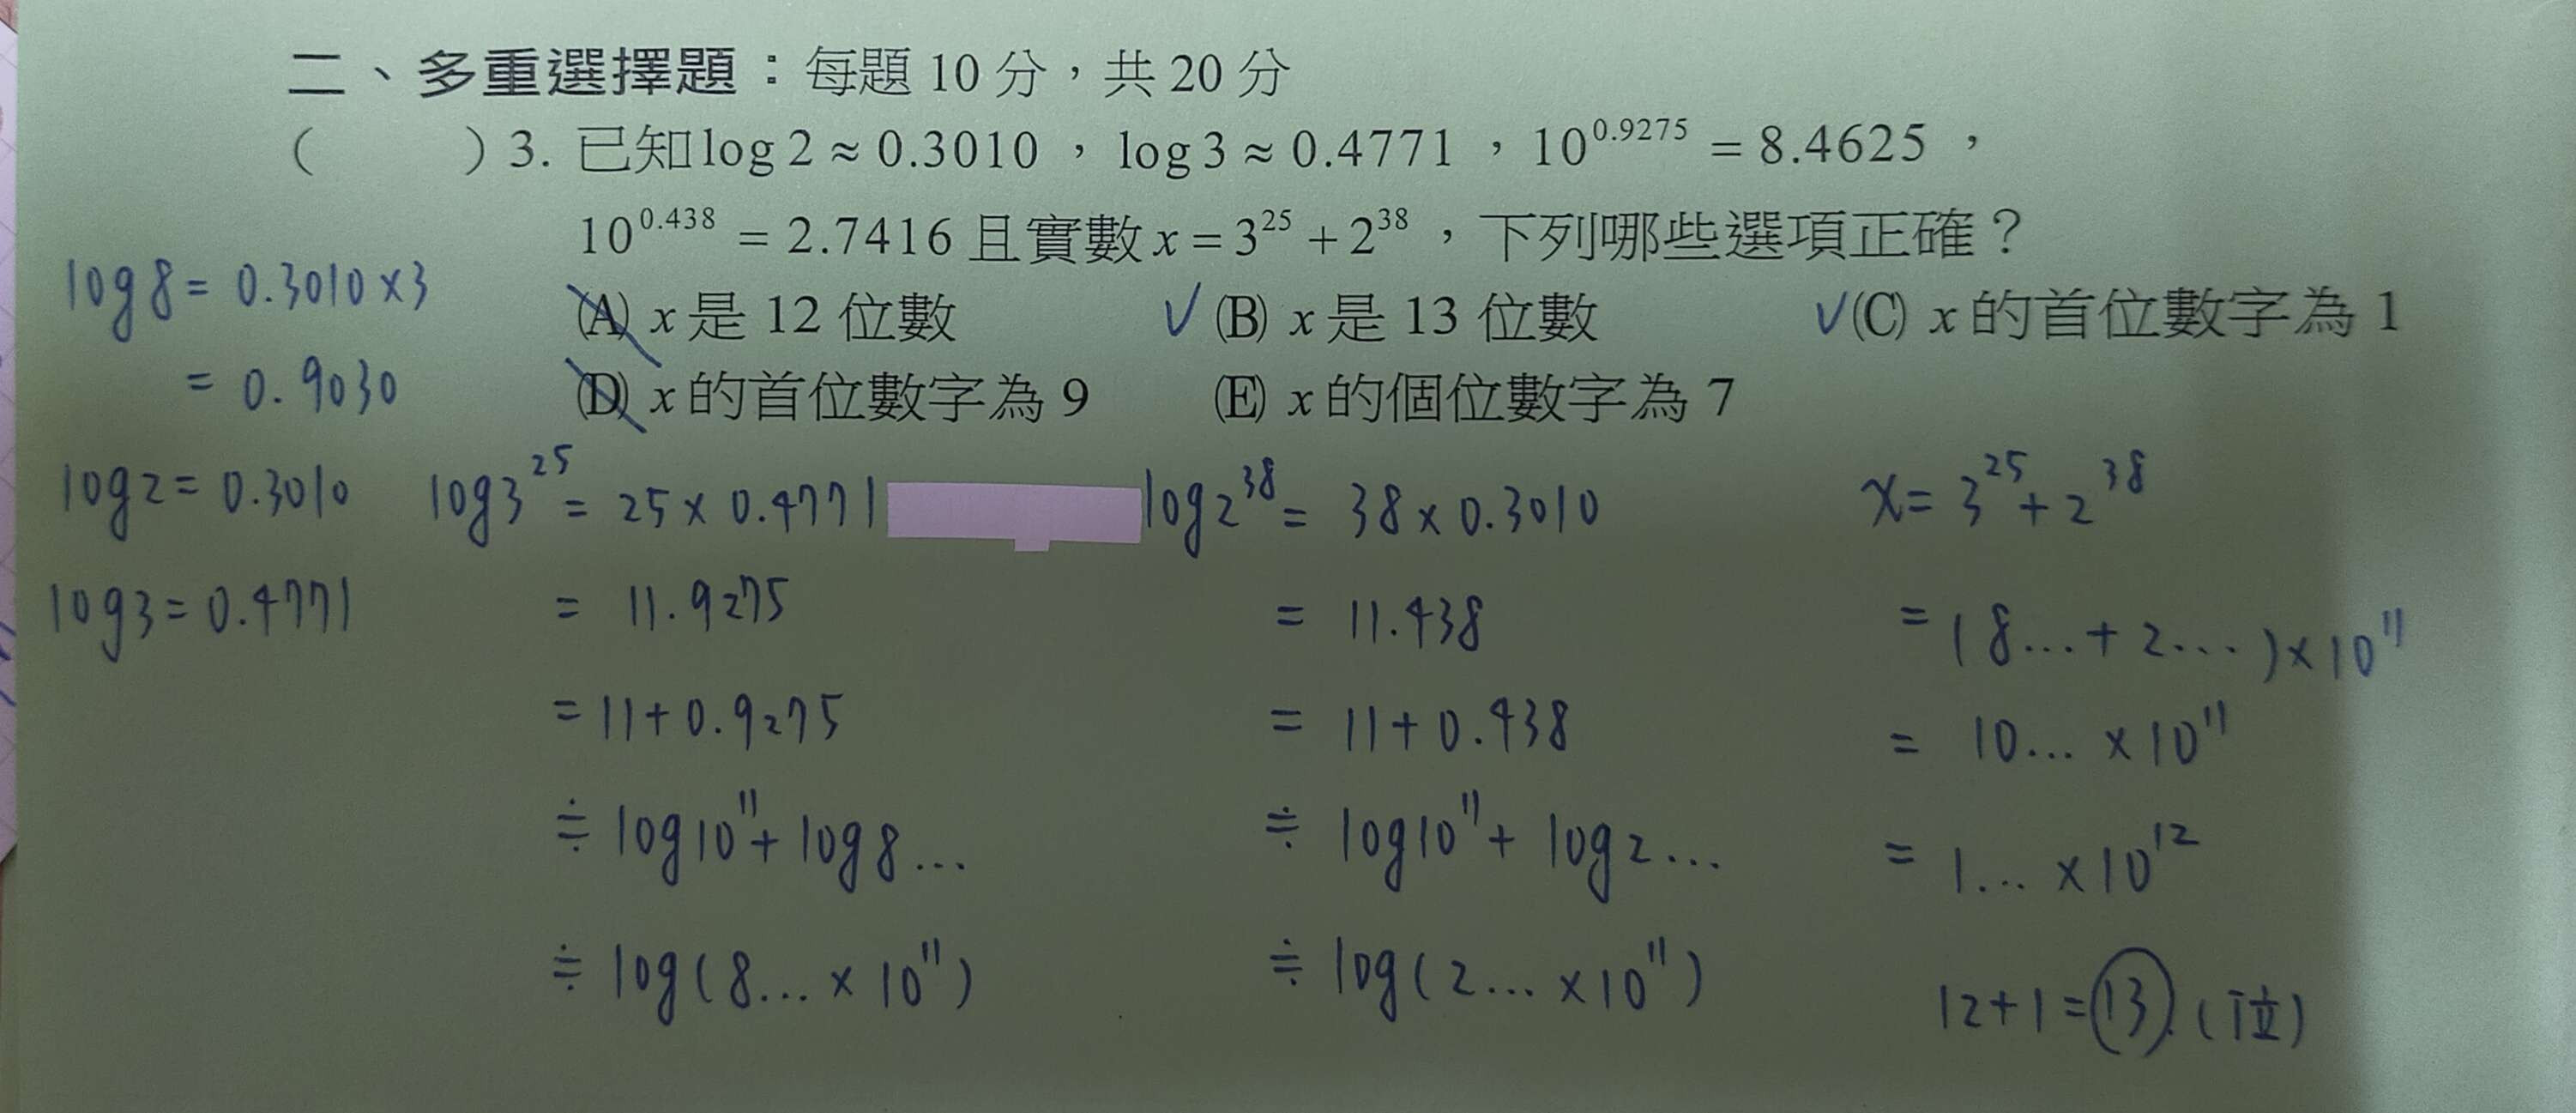 二、多重選擇題：每題 10 分，共 20 分
(　　) 3. 已知 log 2 ≈ 0.3010 ， log 3 ≈ 0.4771 ， 10^0.9275 = 8.4625 ，
10^0.438 = 2.7416 且實數 x = 3^25 + 2^38 ，下列哪些選項正確？
(A) x 是 12 位數 ✓ (B) x 是 13 位數 ✓ (C) x 的首位數字為 1
(D) x 的首位數字為 9 (E) x 的個位數字為 7
log8 = 0.3010×3
= 0.9030
log2 = 0.3010
log3 = 0.4771
log3^25 = 25 × 0.4771
= 11.9275
= 11 + 0.9275
≑ log10^11 + log8...
≑ log(8... × 10^11)
log2^38 = 38 × 0.3010
= 11.438
= 11 + 0.438
≑ log10^11 + log2...
≑ log(2... × 10^11)
x = 3^25 + 2^38
= (8... + 2...) × 10^11
= 10... × 10^11
= 1... × 10^12
12 + 1 = 13. (位)